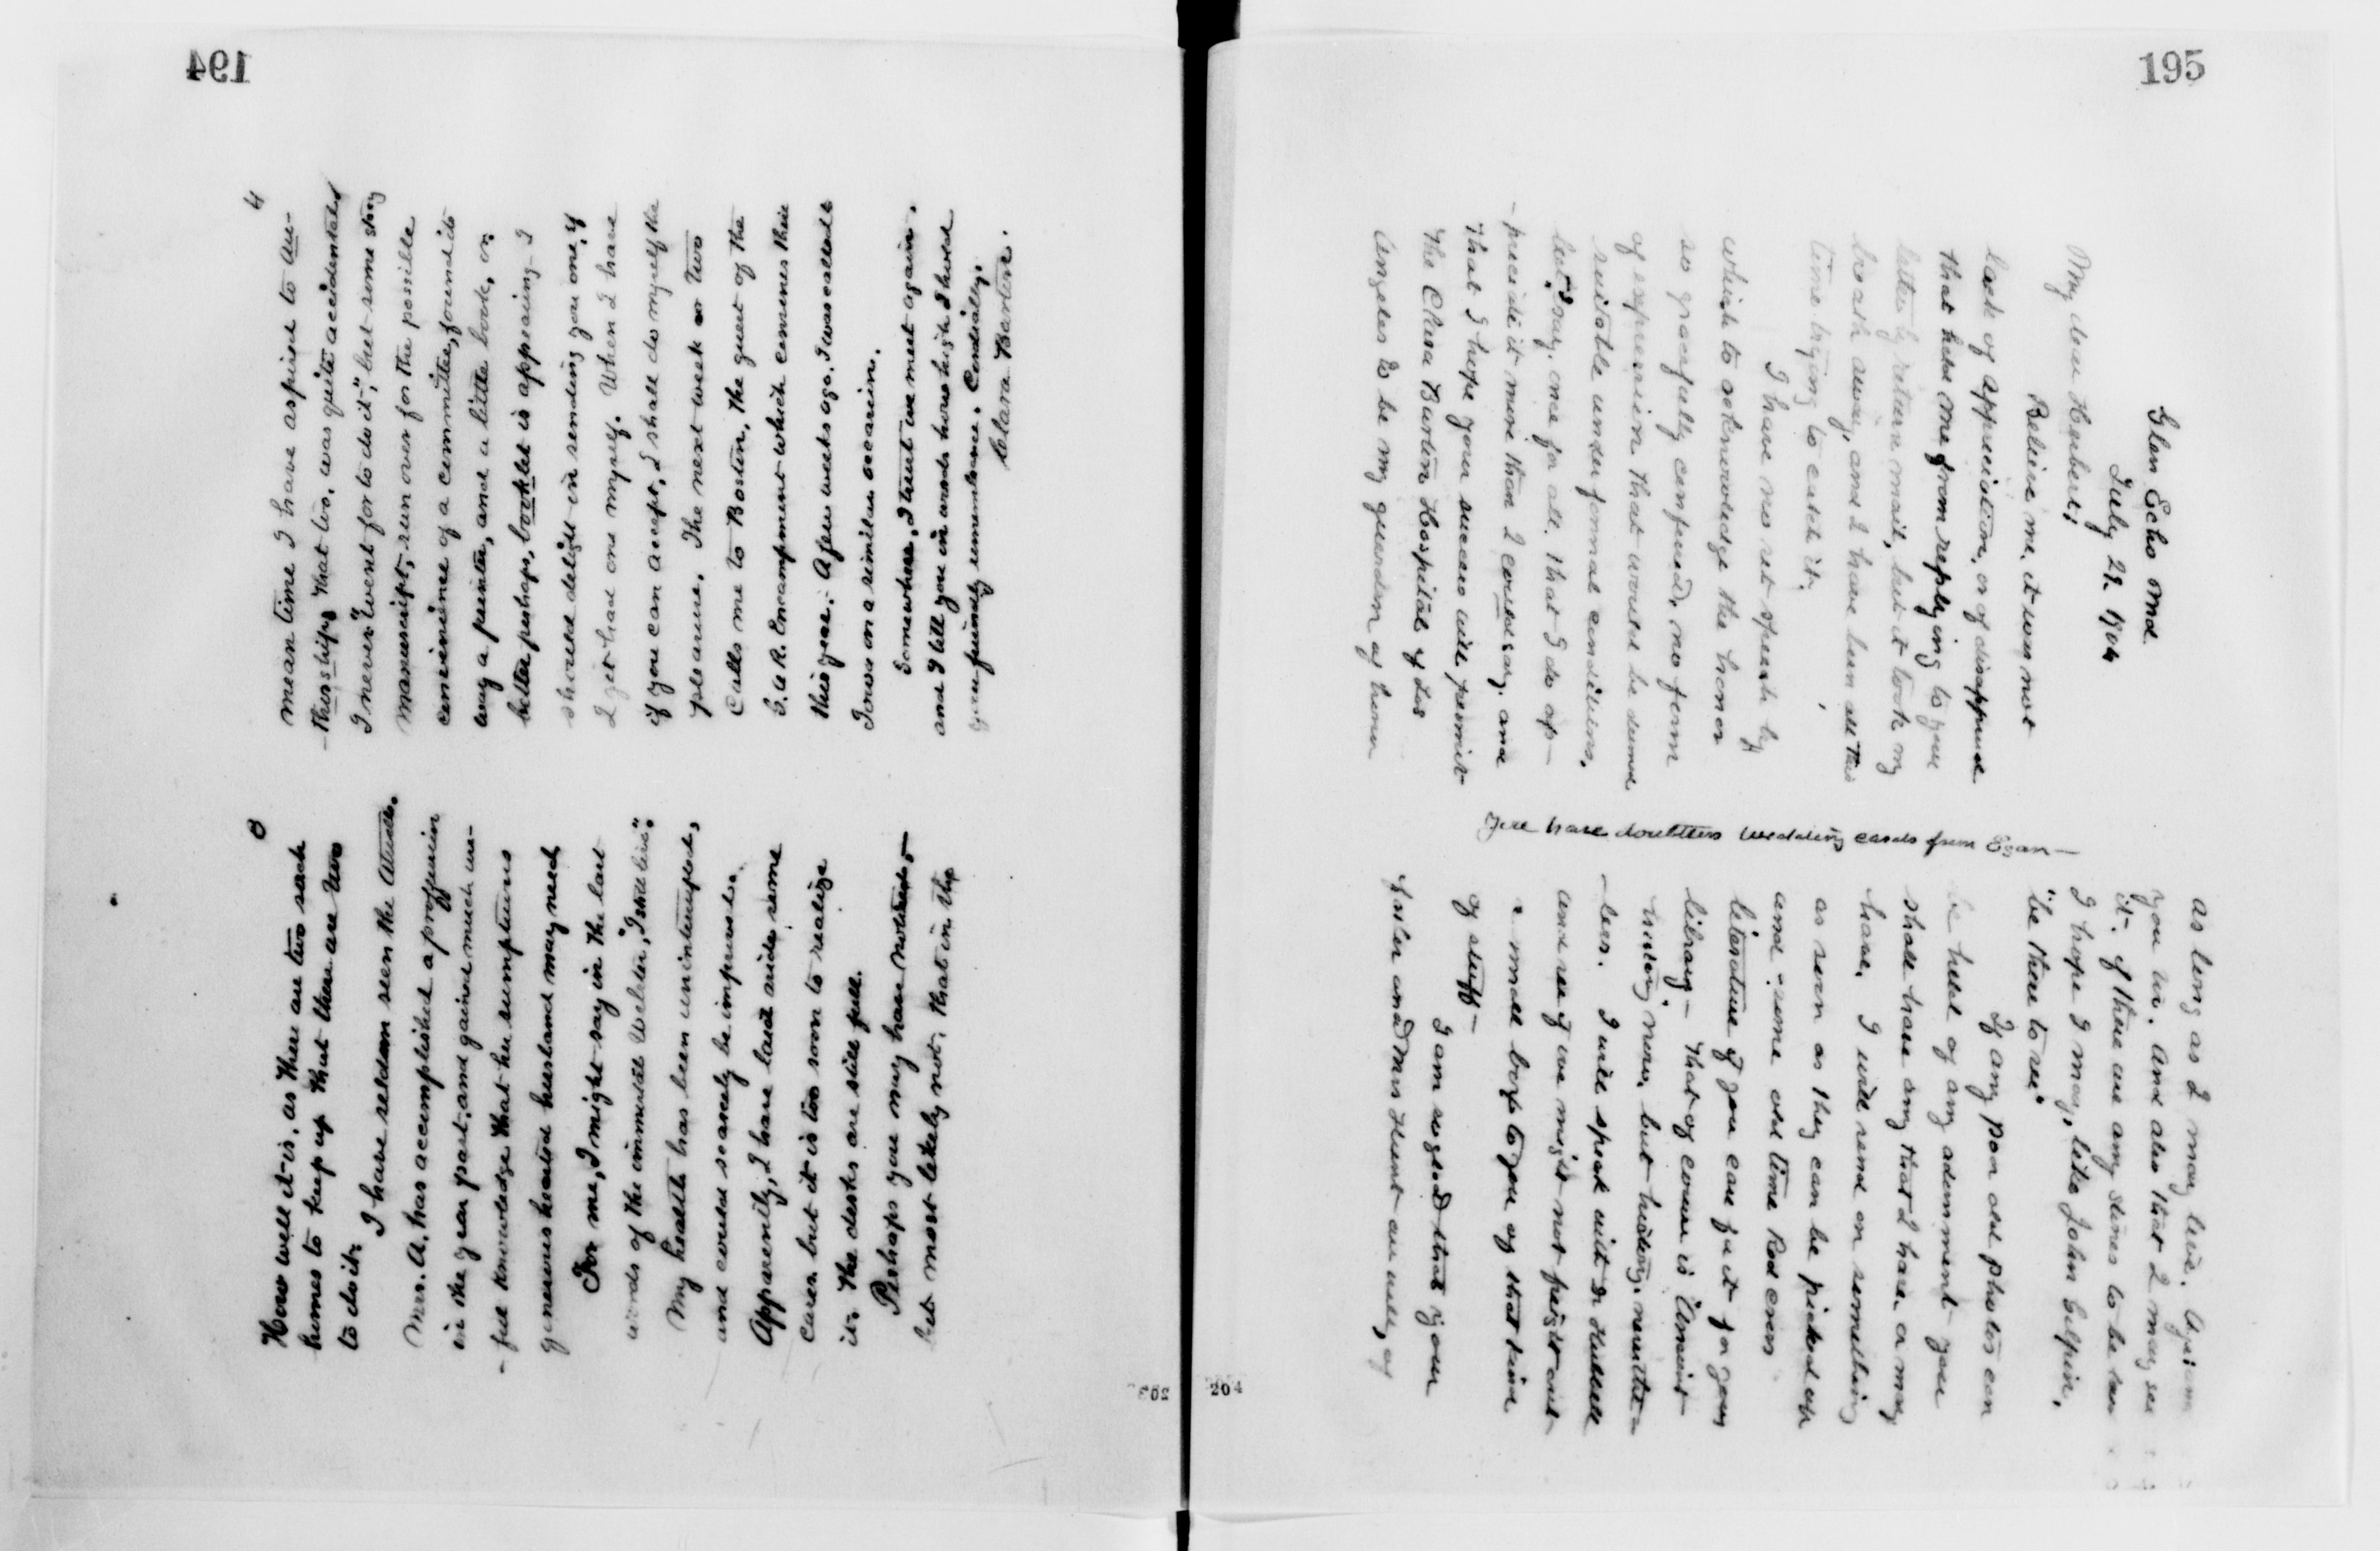 194
3
How well it is, as there are two such
homes to keep up that there are two
to do it.
I have seldom seen the Atwells.
Mrs. A. has accomplished a proffession
in the year past, and gained much use-
-ful knowledge that her sumptuous
generous hearted husband may need
For me, I might say in the last
words of the immortal Webster, "I still live".
My health has been uninterrupted,
and could scarcely be improved.
Apparently, I have laid aside some
cares but it is too soon to realize
it. The desks are still full.
Perhaps you may have noticed,—
but most likely not, that in the
4
mean time I have aspired to Au-
-thorship, That too, was quite accidental
I never "went for to do it", but some stray
manuscript, run over for the possible
convenience of a committee, found its
way a printer, and a little book, or
better perhaps, booklet is appearing- I
should delight in sending you one, if
I yet had one myself. When I have
if you can accept, I shall do myself the
pleasure. The next week or two
Calls me to Boston, the guest of the
G. A. R. Encampment which convenes there
this year. A few weeks ago, I was called to
Iowa on a similar occasion.
Somewhere, I trust we meet again.
and I tell you in words how high I hold
your friendly remembrance. Cordially,
Clara Barton.
195
Glen Echo Md.
July 29. 1904
My dear Herbert;
Believe me, it was not
lack of appreciation, or of
that held me from replying to your
letter by return mail, but it took my
breath away, and I have been all this
time trying to catch it.
I have no set speech by
which to acknowledge the honor
so gracefully conferred, no form
of expression that would be deemed
suitable under formal conditions,
let I say, once for all, that I do ap-
-preciate it more than I could say, and
that I hope your success will permit
the Clara Barton Hospital of Los
Angeles to be my guerdon of honor
You have doubtless wedding cards from Egan—
as long as I may live. Again
you in. And also that I may see
it. if there are any stones to be
I hope I may, like John Gilpin,
"be there to see"
If any poor old photos can
be held of any adornment you
shall have any that I have or may
have. I will send on something
as soon as they can be picked up
and some old time Red Cross
literature if you care for it for your
library— that of course is "Ancient
history" now, but history, neverthe-
-less. I will speak with Dr Hubbell
and see if we might not freight out
a small box to you of that kind
of stuff—
I am so glad that your
Sister and Mrs Hunt are well, of
203
204